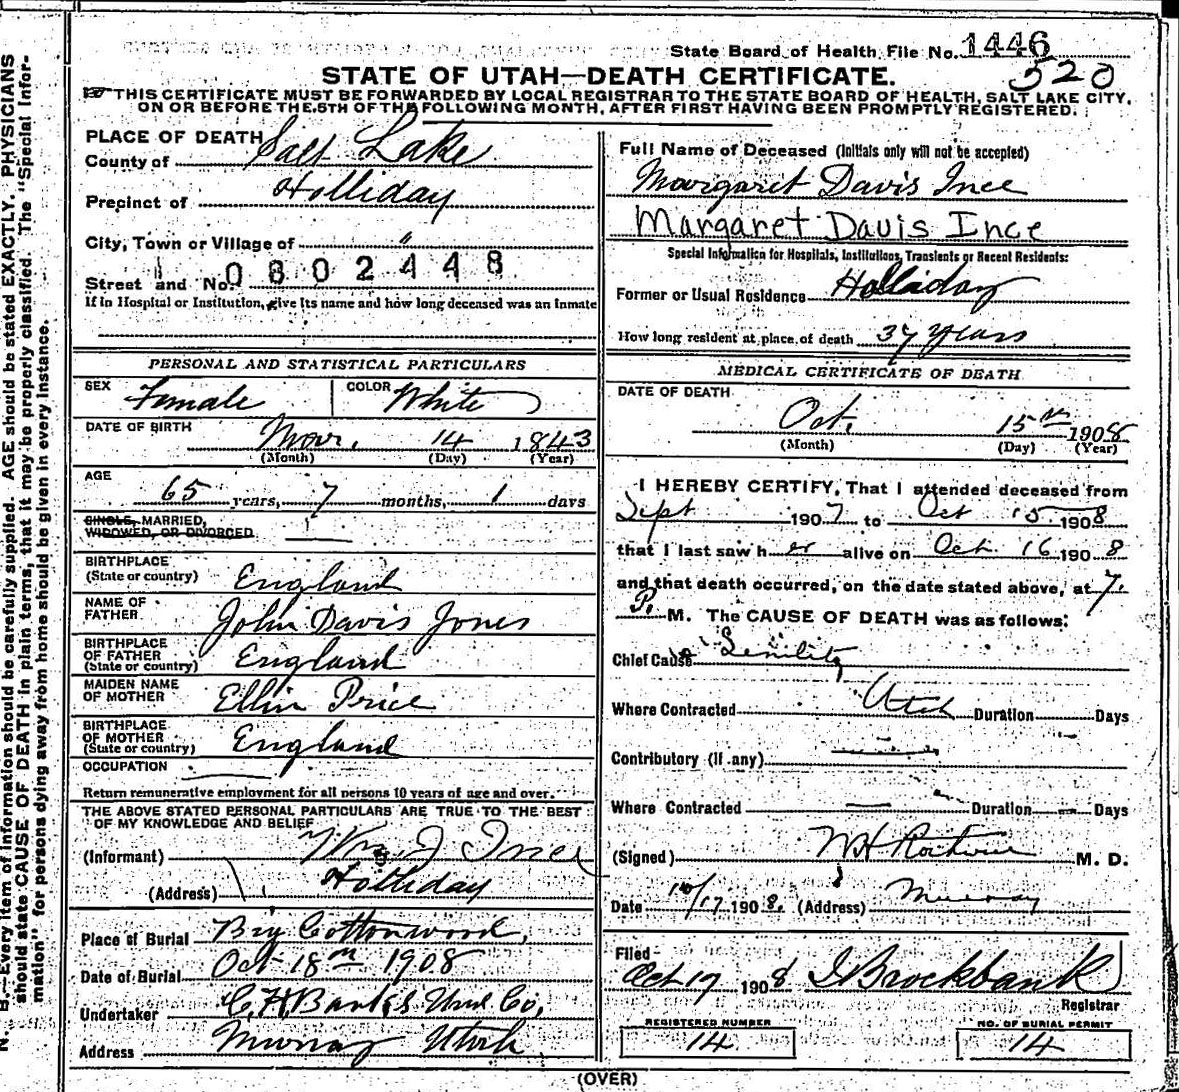 State Board of Health File No. 1446
520
STATE OF UTAH—DEATH CERTIFICATE.
THIS CERTIFICATE MUST BE FORWARDED BY LOCAL REGISTRAR TO THE STATE BOARD OF HEALTH, SALT LAKE CITY,
ON OR BEFORE THE 5TH OF THE FOLLOWING MONTH, AFTER FIRST HAVING BEEN PROMPTLY REGISTERED.
PLACE OF DEATH
County of Salt Lake
Precinct of Holliday
City, Town or Village of "
Street and No. 0802448
If in Hospital or Institution, give its name and how long deceased was an inmate
Full Name of Deceased (Initials only will not be accepted)
Margaret Davis Ince
Margaret Davis Ince
Special Information for Hospitals, Institutions, Transients or Recent Residents:
Former or Usual Residence Holladay
How long resident at place of death 37 years
PERSONAL AND STATISTICAL PARTICULARS
SEX Female COLOR White
DATE OF BIRTH
Mar. 14 1843
(Month) (Day) (Year)
AGE
65 years, 7 months, 1 days
SINGLE, MARRIED,
WIDOWED, OR DIVORCED
BIRTHPLACE
(State or country) England
NAME OF
FATHER John Davis Jones
BIRTHPLACE
OF FATHER
(State or country) England
MAIDEN NAME
OF MOTHER Ellin Price
BIRTHPLACE
OF MOTHER
(State or country) England
OCCUPATION
Return remunerative employment for all persons 10 years of age and over.
THE ABOVE STATED PERSONAL PARTICULARS ARE TRUE TO THE BEST
OF MY KNOWLEDGE AND BELIEF
(Informant) Wm J Ince
(Address) Holliday
Place of Burial Big Cottonwood,
Date of Burial Oct 18th 1908
Undertaker C, H, Banks Und. Co,
Address Murray Utah
MEDICAL CERTIFICATE OF DEATH
DATE OF DEATH
Oct. 15th 1908
(Month) (Day) (Year)
I HEREBY CERTIFY, That I attended deceased from
Sept 1907 to Oct 15 1908
that I last saw her alive on Oct. 16 1908
and that death occurred, on the date stated above, at 7.
P. M. The CAUSE OF DEATH was as follows:
Chief Cause Senility
Where Contracted Utah Duration Days
Contributory (if any)
Where Contracted — Duration — Days
(Signed) M. D.
Date 10/17 1908. (Address) Murray
Filed
Oct 17 1908 Brockbank
Registrar
REGISTERED NUMBER
14
NO. OF BURIAL PERMIT
14
(OVER)
N. B.—Every item of information should be carefully supplied. AGE should be stated EXACTLY. PHYSICIANS
should state CAUSE OF DEATH in plain terms, that it may be properly classified. The "Special Infor-
mation" for persons dying away from home should be given in every instance.